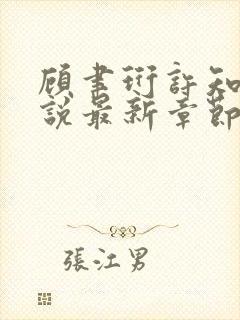 顾書衍許知
説最新章節
張江男